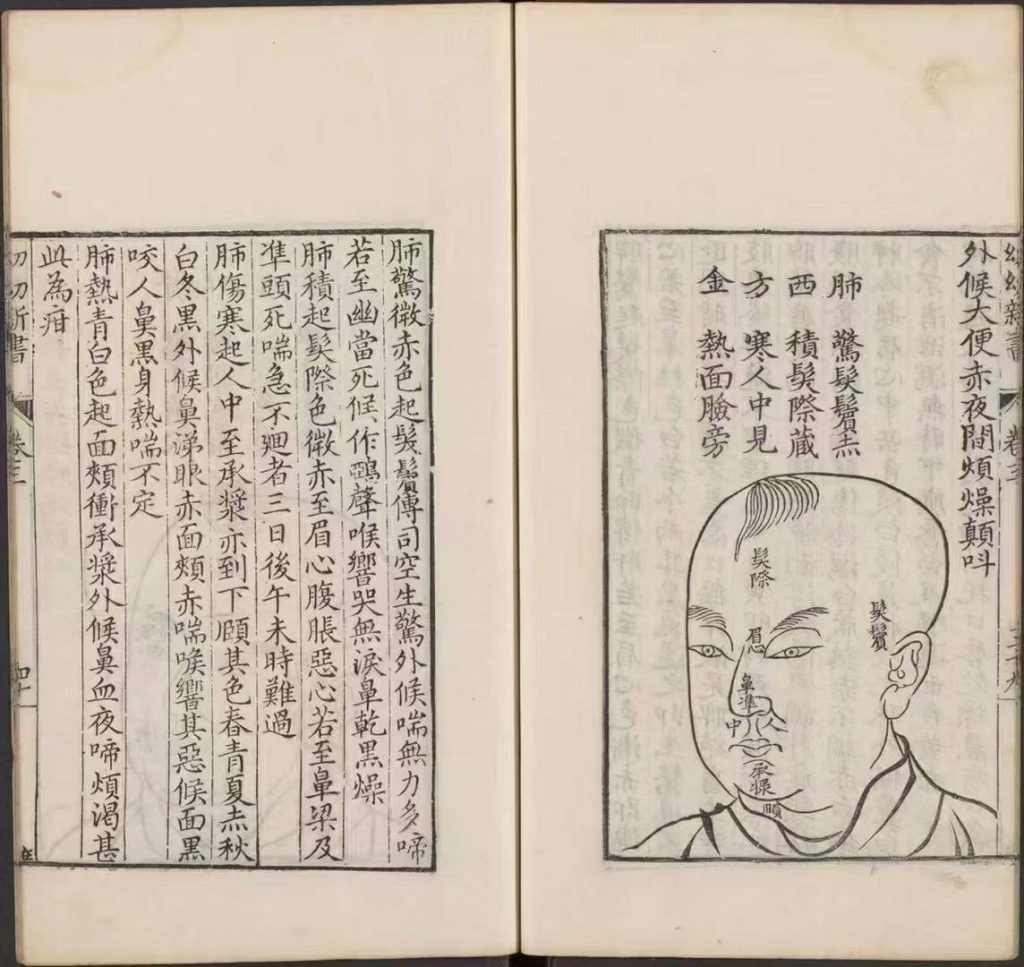 幼幼新書 卷三
外候大便赤夜間煩燥顛呌
肺 驚髮鬢赤
西 積髮際藏
方 寒人中見
金 熱面臉旁
髮際
髮鬢
眉心
鼻準
人中
承漿
頤
肺驚微赤色起髮鬢傳司空生驚外候喘無力多啼
若至幽當死候作鵶聲喉響哭無淚鼻乾黑燥
肺積起髮際色微赤至眉心腹脹惡心若至鼻梁及
準頭死喘急不廻者三日後午未時難過
肺傷寒起人中至承漿亦到下頤其色春青夏赤秋
白冬黑外候鼻涕眼赤面頰赤喘喉響其惡候面黑
咬人鼻黑身熱喘不定
肺熱青白色起面頰衝承漿外候鼻血夜啼煩渴甚
此為疳
幼幼新書 卷三